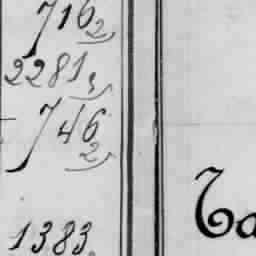 716 2
2281 3
746 2
1383
Ta